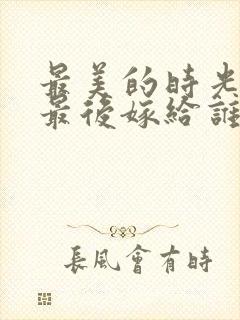 最美的時光
最後嫁給誰
長風會有時